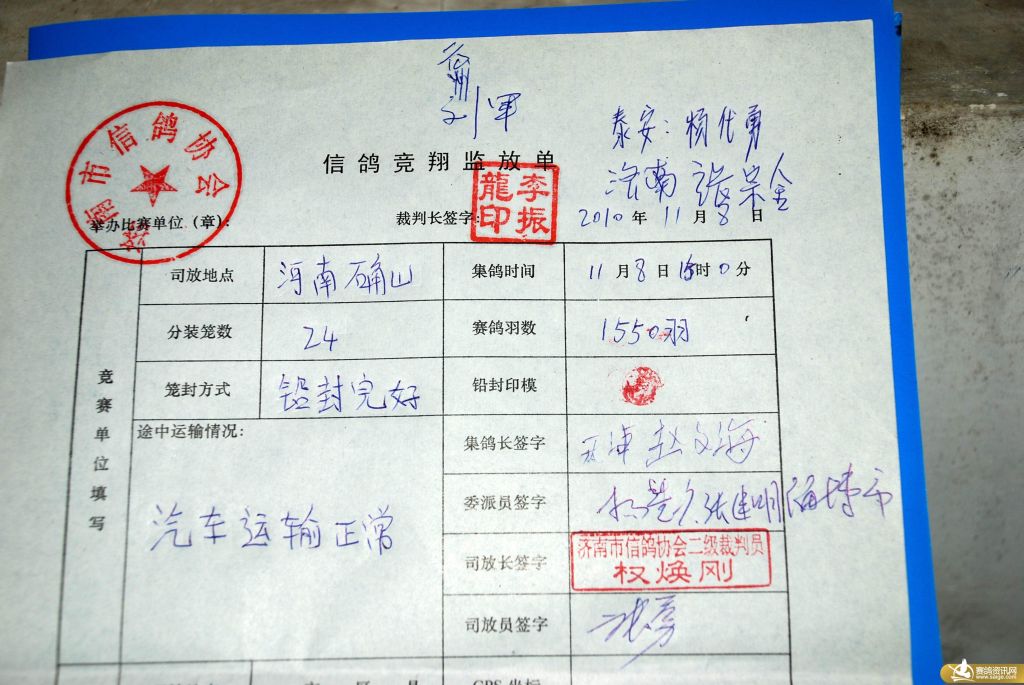 刘军
泰安:杨代勇
信鸽竞翔监放单
济南 张荣金
济南市信鸽协会
李振龍印
举办比赛单位(章):
裁判长签字:
2010年11月8日
竞赛单位填写
司放地点 河南确山 集鸽时间 11月8日 时0分
分装笼数 24 赛鸽羽数 1550羽
笼封方式 铅封完好 铅封印模
途中运输情况:
汽车运输正常
集鸽长签字 天津 赵文海
委派员签字 张建明 淄博市
司放长签字 济南市信鸽协会二级裁判员
权焕刚
司放员签字 张勇
赛鸽资讯网
www.saige.com